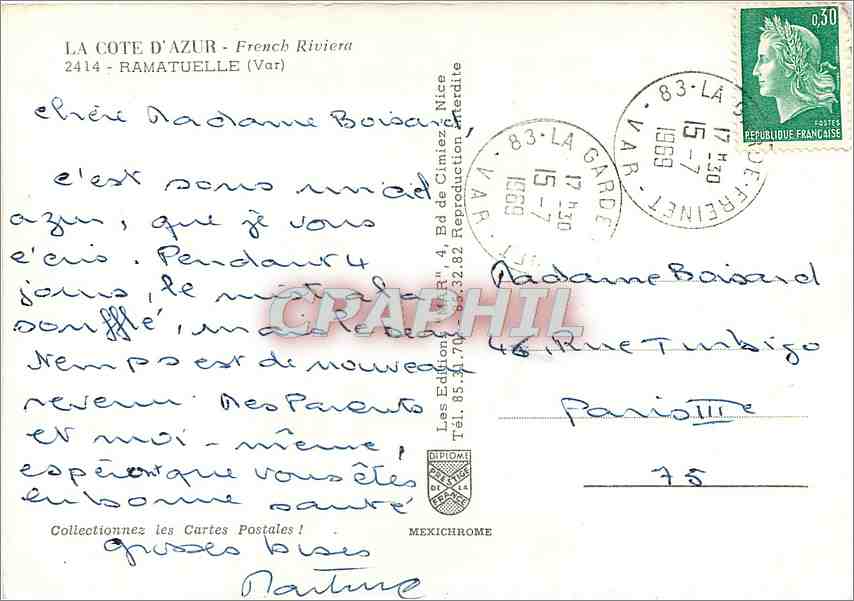 LA COTE D'AZUR - French Riviera
2414 - RAMATUELLE (Var)
chère Madame Boisard,
c'est sous un ciel
azur, que je vous
écris. Pendant 4
jours, le mistral a
soufflé, mais le beau
temps est de nouveau
revenu. Mes Parents
et moi-même,
espéront que vous êtes
en bonne santé
Collectionnez les Cartes Postales !
grosses bises
Martine
Les Editions "MAR", 4, Bd de Cimiez - Nice
Tél. 85.31.70 - 85.32.82 Reproduction Interdite
DIPLOME
PRESTIGE
DE LA
FRANCE
MEXICHROME
83 - LA GARDE
17 H 30
15 - 7
1969
VAR
83 - LA GARDE-FREINET
17 H 30
15 - 7
1969
VAR
0,30
POSTES
REPUBLIQUE FRANÇAISE
Madame Boisard
46, Rue Turbigo
Paris IIIe
75
CPAPHIL